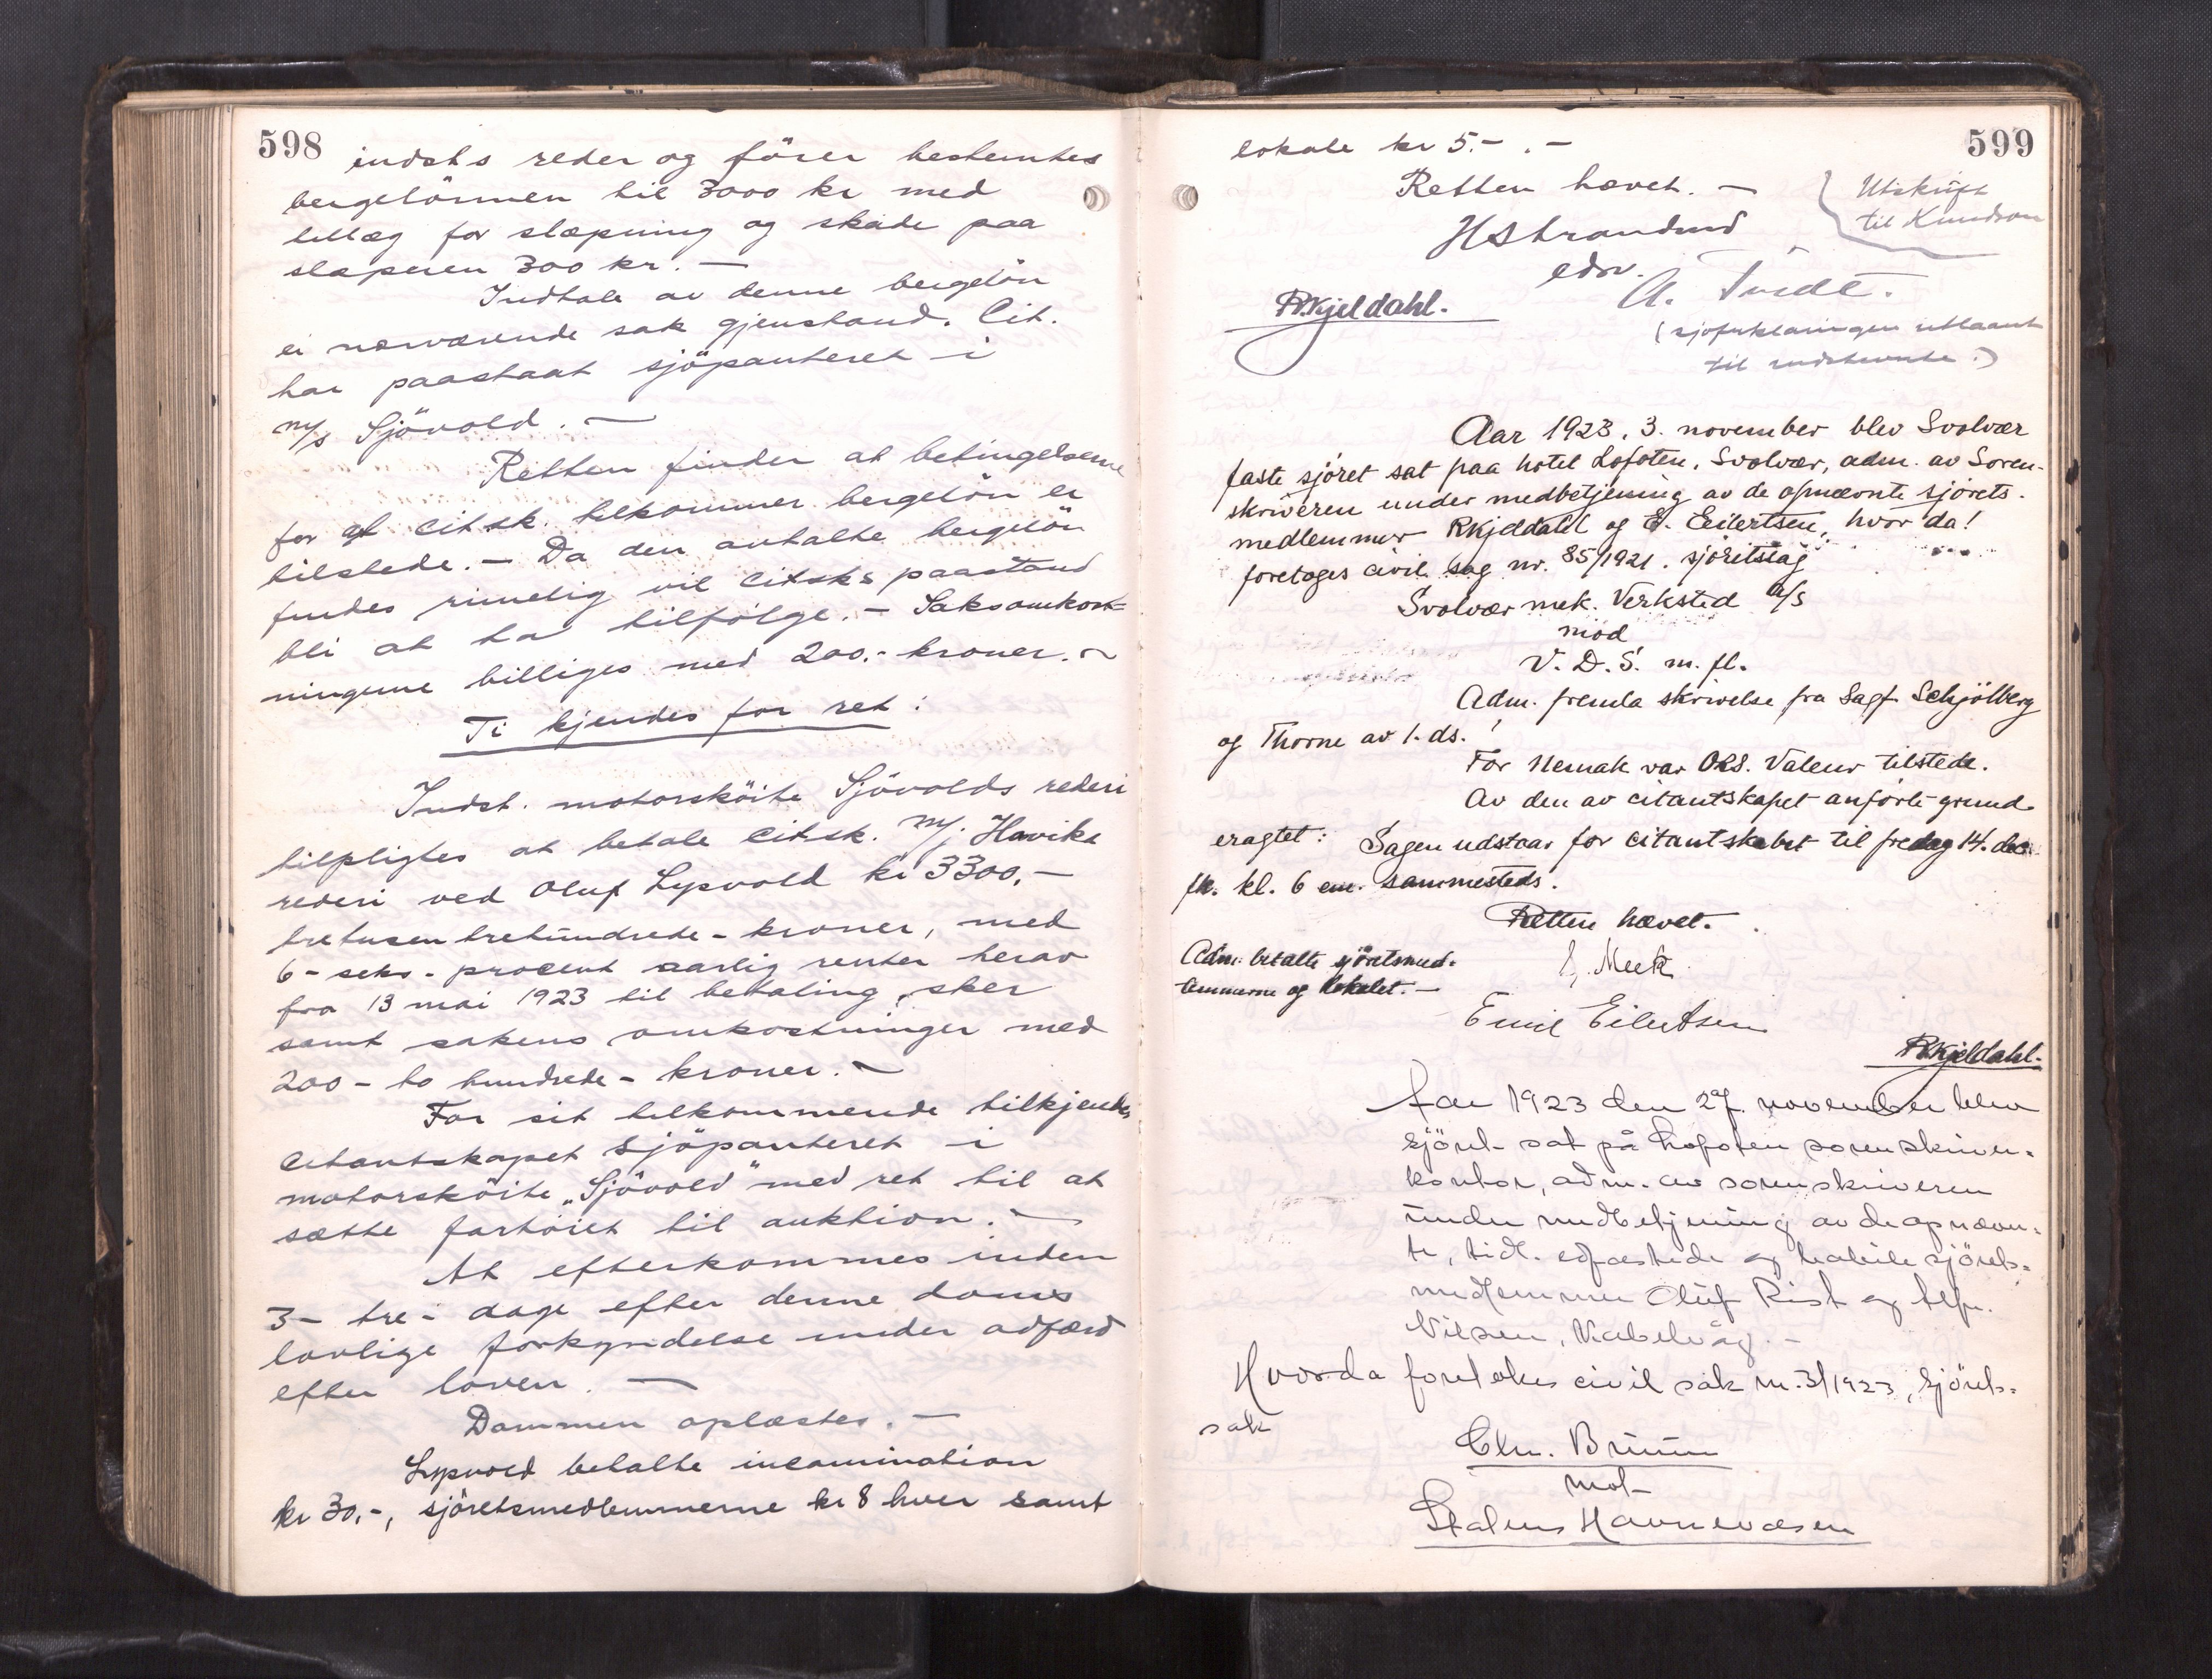 598
indsts reder og fører bestemtes
bergelönnen til 3000 kr med
tillæg for slæpning og skade paa
slæperen 300 kr. —
Indtale av denne bergelön
er nærværende sak gjenstand. Cit.
har paastaat sjöpanteret i
m/s Sjövold. —
Retten finder at betingelserne
for at citsk. tilkommer bergelön er
tilstede. — Da den avtalte bergelön
findes rimelig vil citsks paastand
bli at ta tilfölge. — Saksomkost=
ningerne billiges med 200.- kroner. —
Ti kjendes for ret:
Indst. motorsköite Sjövolds rederi
tilpligtes at betale citsk. m/j. Haviks
rederi ved Oluf Lysvold kr 3300,—
tretusentrehundrede - kroner, med
6 - seks - procent aarlig renter herav
fra 13 mai 1923 til betaling sker
samt sakens omkostninger med
200 - to hundrede - kroner. —
For sit tilkommende tilkjendes
citantskapet sjöpanteret i
motorsköite „Sjövold" med ret til at
sætte fartöiet til auktion. —
At efterkommes inden
3 - tre - dage efter denne doms
lovlige forkyndelse under adfærd
efter loven. —
Dommen oplæstes. —
Lysvold betalte incamination
kr 30,-, sjöretsmedlemmerne kr 8 hver samt
599
lokale kr 5.- . -
Retten hævet. —
Utskrift
til Knudson
HStrandmd
edsv.
A. Tvedt.
RKjeldahl.
(sjöforklaringen utlaant
til indstevnte.)
Aar 1923, 3. november blev Svolvær
faste sjöret sat paa hotel Lofoten, Svolvær, adm. av Soren-
skriveren under medbetjening av de opnævnte sjörets-
medlemmer RKjeldahl og E. Eilertsen, hvor da!
foretoges civil sag nr. 85/1921. sjöretssag
Svolvær mek. Verksted A/S
mod
V. D. S. m. fl.
Adm. fremla skrivelse fra Sagf. Schjölberg
og Thorne av 1. ds.
For Nemak var ORS. Valeur tilstede.
Av den av citantskapet anförte grund
eragtet: Sagen udstaar for citantskabet til fredag 14. dec.
fk. kl. 6 em. sammesteds.
Retten hævet.
Adm. betalte sjöretsmed-
lemmerne og lokalet. —
Emil Eilertsen
RKjeldahl.
Aar 1923 den 27. november blev
sjöret sat på Lofoten sorenskriver-
kontor, adm. av sorenskriveren
under medbetjening av de opnævn-
te, tidl. edfæstede og habile sjörets-
medlemmer Oluf Rist og
Nilsen, Kabelvåg. -
Hvorda foretokes civil sak nr. 3/1923, sjörets-
sak
Chr. Bruun
mot
Statens Havnevæsen